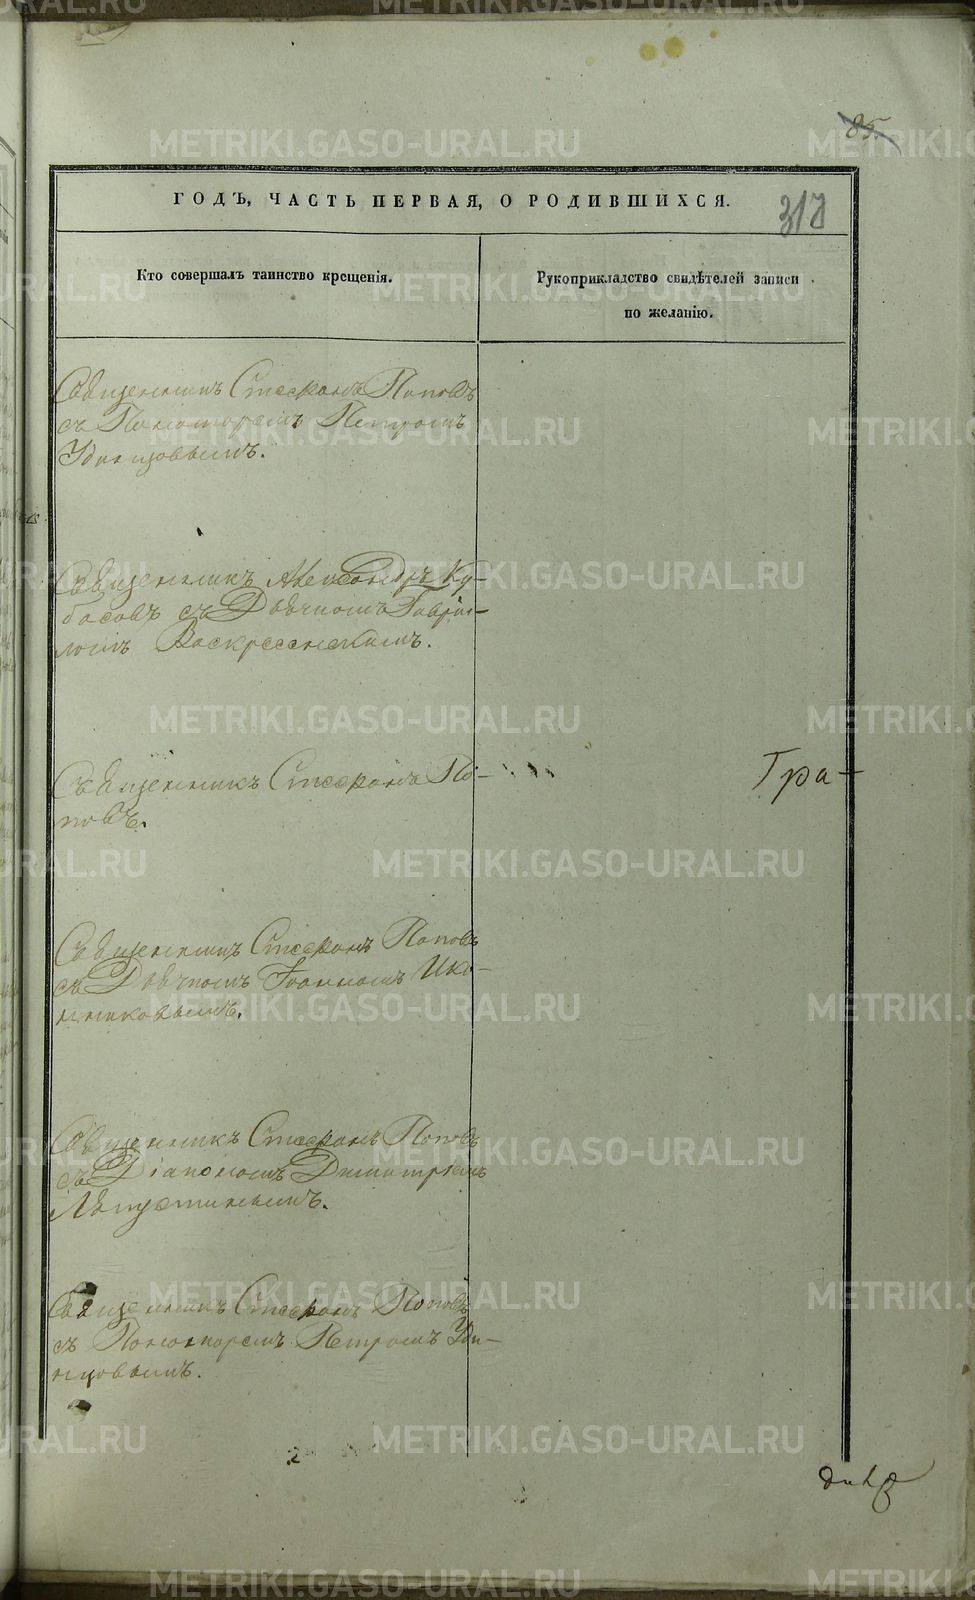 85.
ГОДЪ, ЧАСТЬ ПЕРВАЯ, О РОДИВШИХСЯ.
317
Кто совершалъ таинство крещенія.
Рукоприкладство свидѣтелей записи
по желанію.
Священникъ Стефанъ Поповъ
съ Пономаремъ Петромъ
Удинцовымъ.
Священникъ Александръ Ку-
басовъ съ Дьячкомъ Гаврі-
ломъ Воскресенскимъ.
Священникъ Стефанъ По-
повъ.
Гра-
Священникъ Стефанъ Поповъ
съ Дьячкомъ Іоанномъ Ико-
нниковымъ.
Священникъ Стефанъ Поповъ
съ Діакономъ Димитріемъ
Ляпустинымъ.
Священникъ Стефанъ Поповъ
съ Пономаремъ Петромъ Уди-
нцовымъ.
METRIKI.GASO-URAL.RU